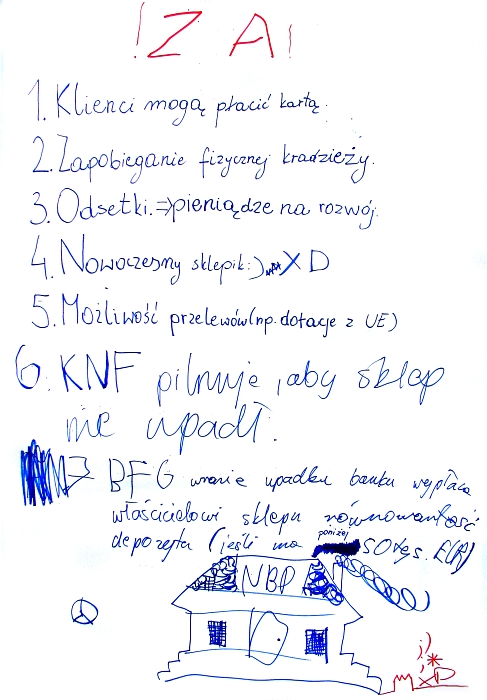 ! Z A !
1. Klienci mogą płacić kartą.
2. Zapobieganie fizycznej kradzieży.
3. Odsetki. ⇒ pieniądze na rozwój.
4. Nowoczesny sklepik :) XD
5. Możliwość przelewów (np. dotacje z UE)
6. KNF pilnuje, aby sklep
nie upadł.
7 BFG wrazie upadku banku wypłaca
właścicielowi sklepu równowartość
poniżej
depozytu (jeśli ma 50 tys. EUR)
NBP
XD